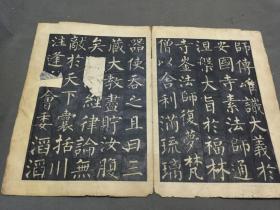 師傳唯識大義於
安國寺素法師通
涅槃大旨於福林
寺崟法師復夢梵
僧以舍利滿琉璃
器使吞之且曰三
藏大教盡貯汝腹
矣經律論無
敵於天下囊括川
注逢會委滔滔